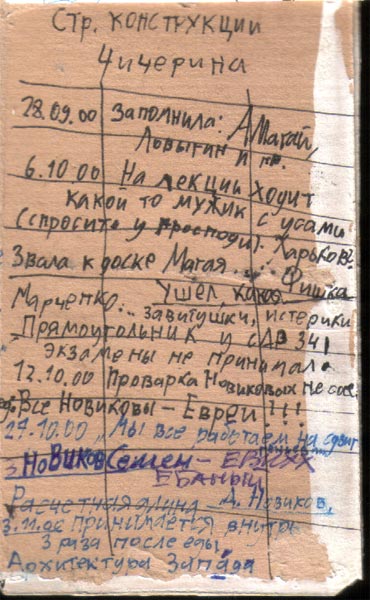 Стр. конструкции
Чичерина
28.09.00 Запомнила: А Магай,
Ловыгин и пр.
6.10.00 На лекции ходит
какой то мужик с усами
(спросите у господ. Харьков?
Звала к доске Магая.... Фишка
Марченко... ушел, какая
завитушки, истерики
"Прямоугольник у САВ 341
Экзамены не принимал.
12.10.00 Проварка Новиковых не
Все Новиковы - Евреи!!!
27.10.00 "Мы все работаем на сдвиг
Новиков Семен -
Расчетная длина А. Новиков,
3.11.00 принимается внутрь
3 раза после еды
Архитектура Запада